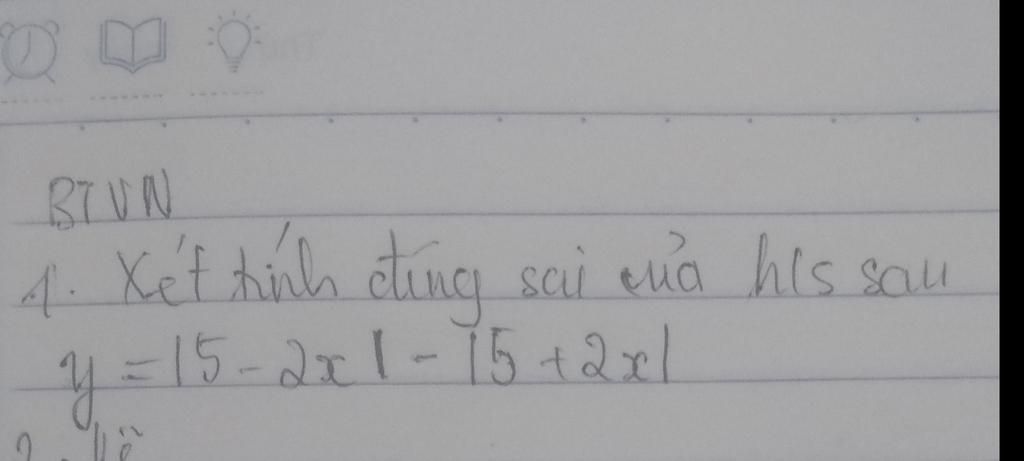 BTVN
1. Xét tính đúng sai của h/s sau
y = |5 - 2x| - |5 + 2x|